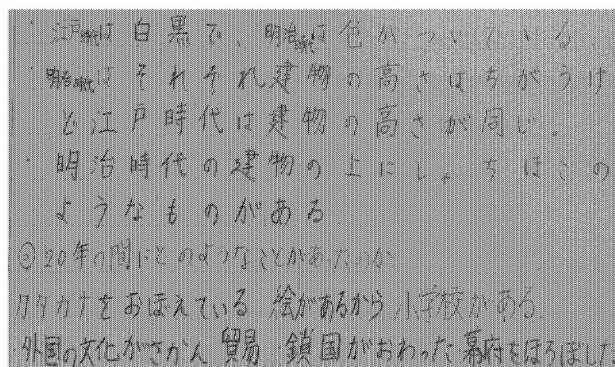 ・江戸時代は白黒で、明治時代は色がついている。
・明治時代はそれぞれ建物の高さはちがうけ
ど江戸時代は建物の高さが同じ。
・明治時代の建物の上にしゃちほこの
ようなものがある
◎20年の間にどのようなことがあったのか
カタカナをおぼえている 絵があるから 小学校がある。
外国の文化がさかん 貿易・鎖国がおわった 幕府をほろぼした